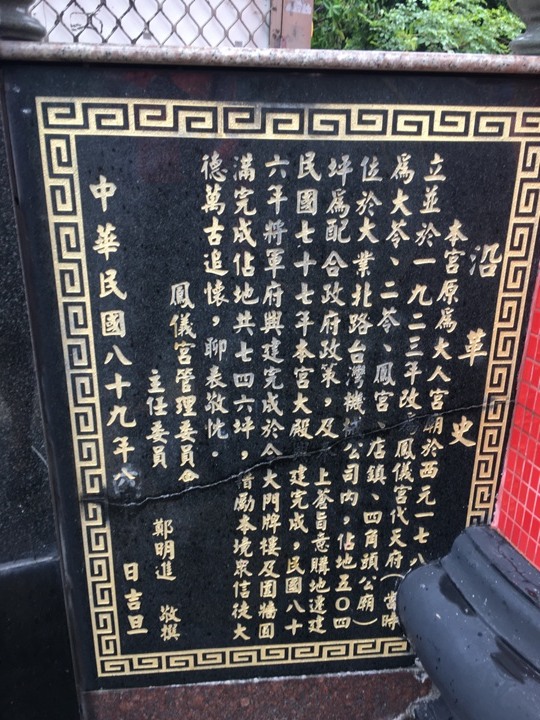 沿革史
本宮原為大人宮廟於西元一七八
立並於一九二三年改為鳳儀宮代天府(當時
為大苓、二苓、鳳宮、店鎮、四角頭公廟)
位於大業北路台灣機械公司內，佔地五0四
坪為配合政府政策，及 上蒼旨意購地速建
民國七十七年本宮大殿 建完成，民國八十
六年將軍府興建完成於今大門牌樓及圍牆圓
滿完成佔地共七四六坪，督勵本境眾信徒大
德萬古追懷，聊表敬忱.
鳳儀宮管理委員會
主任委員 鄭明進 敬撰
中華民國八十九年六 日吉旦